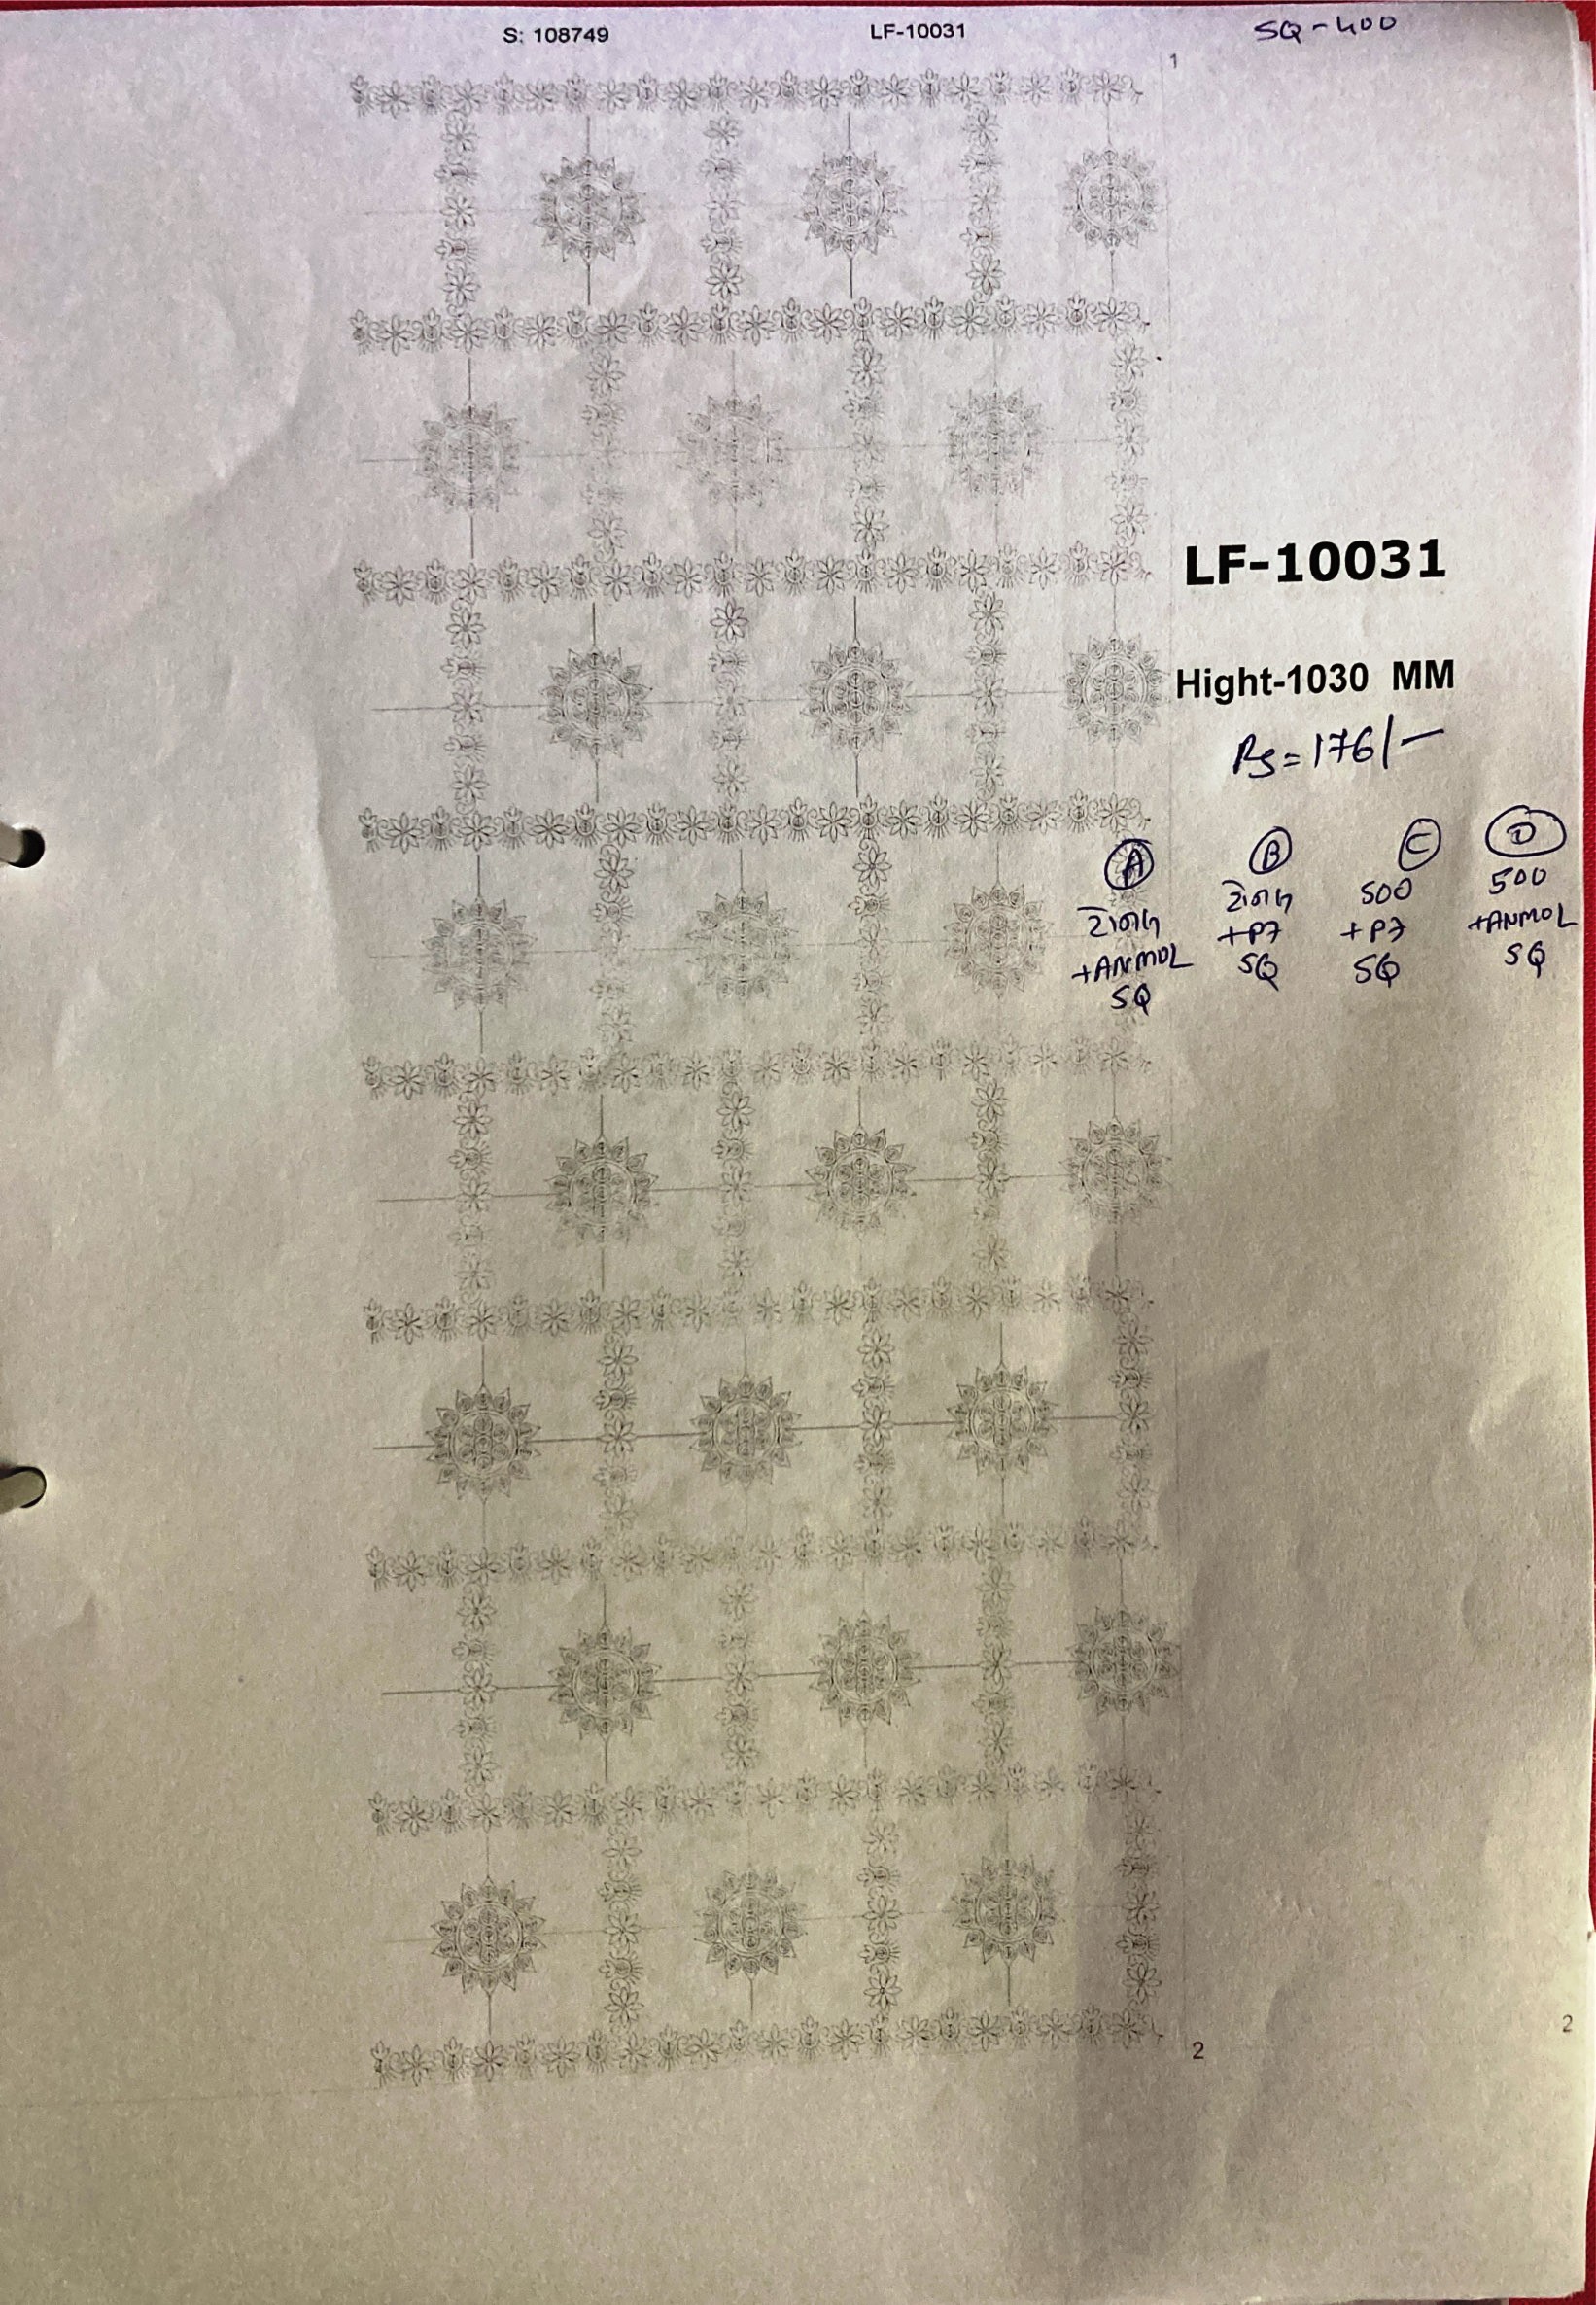 S: 108749 LF-10031 SQ-400
1
LF-10031
Hight-1030 MM
Rs = 176/-
A B C D
+ANMOL
SQ
+P7
SQ
500
+P7
SQ
500
+ANMOL
SQ
2
2